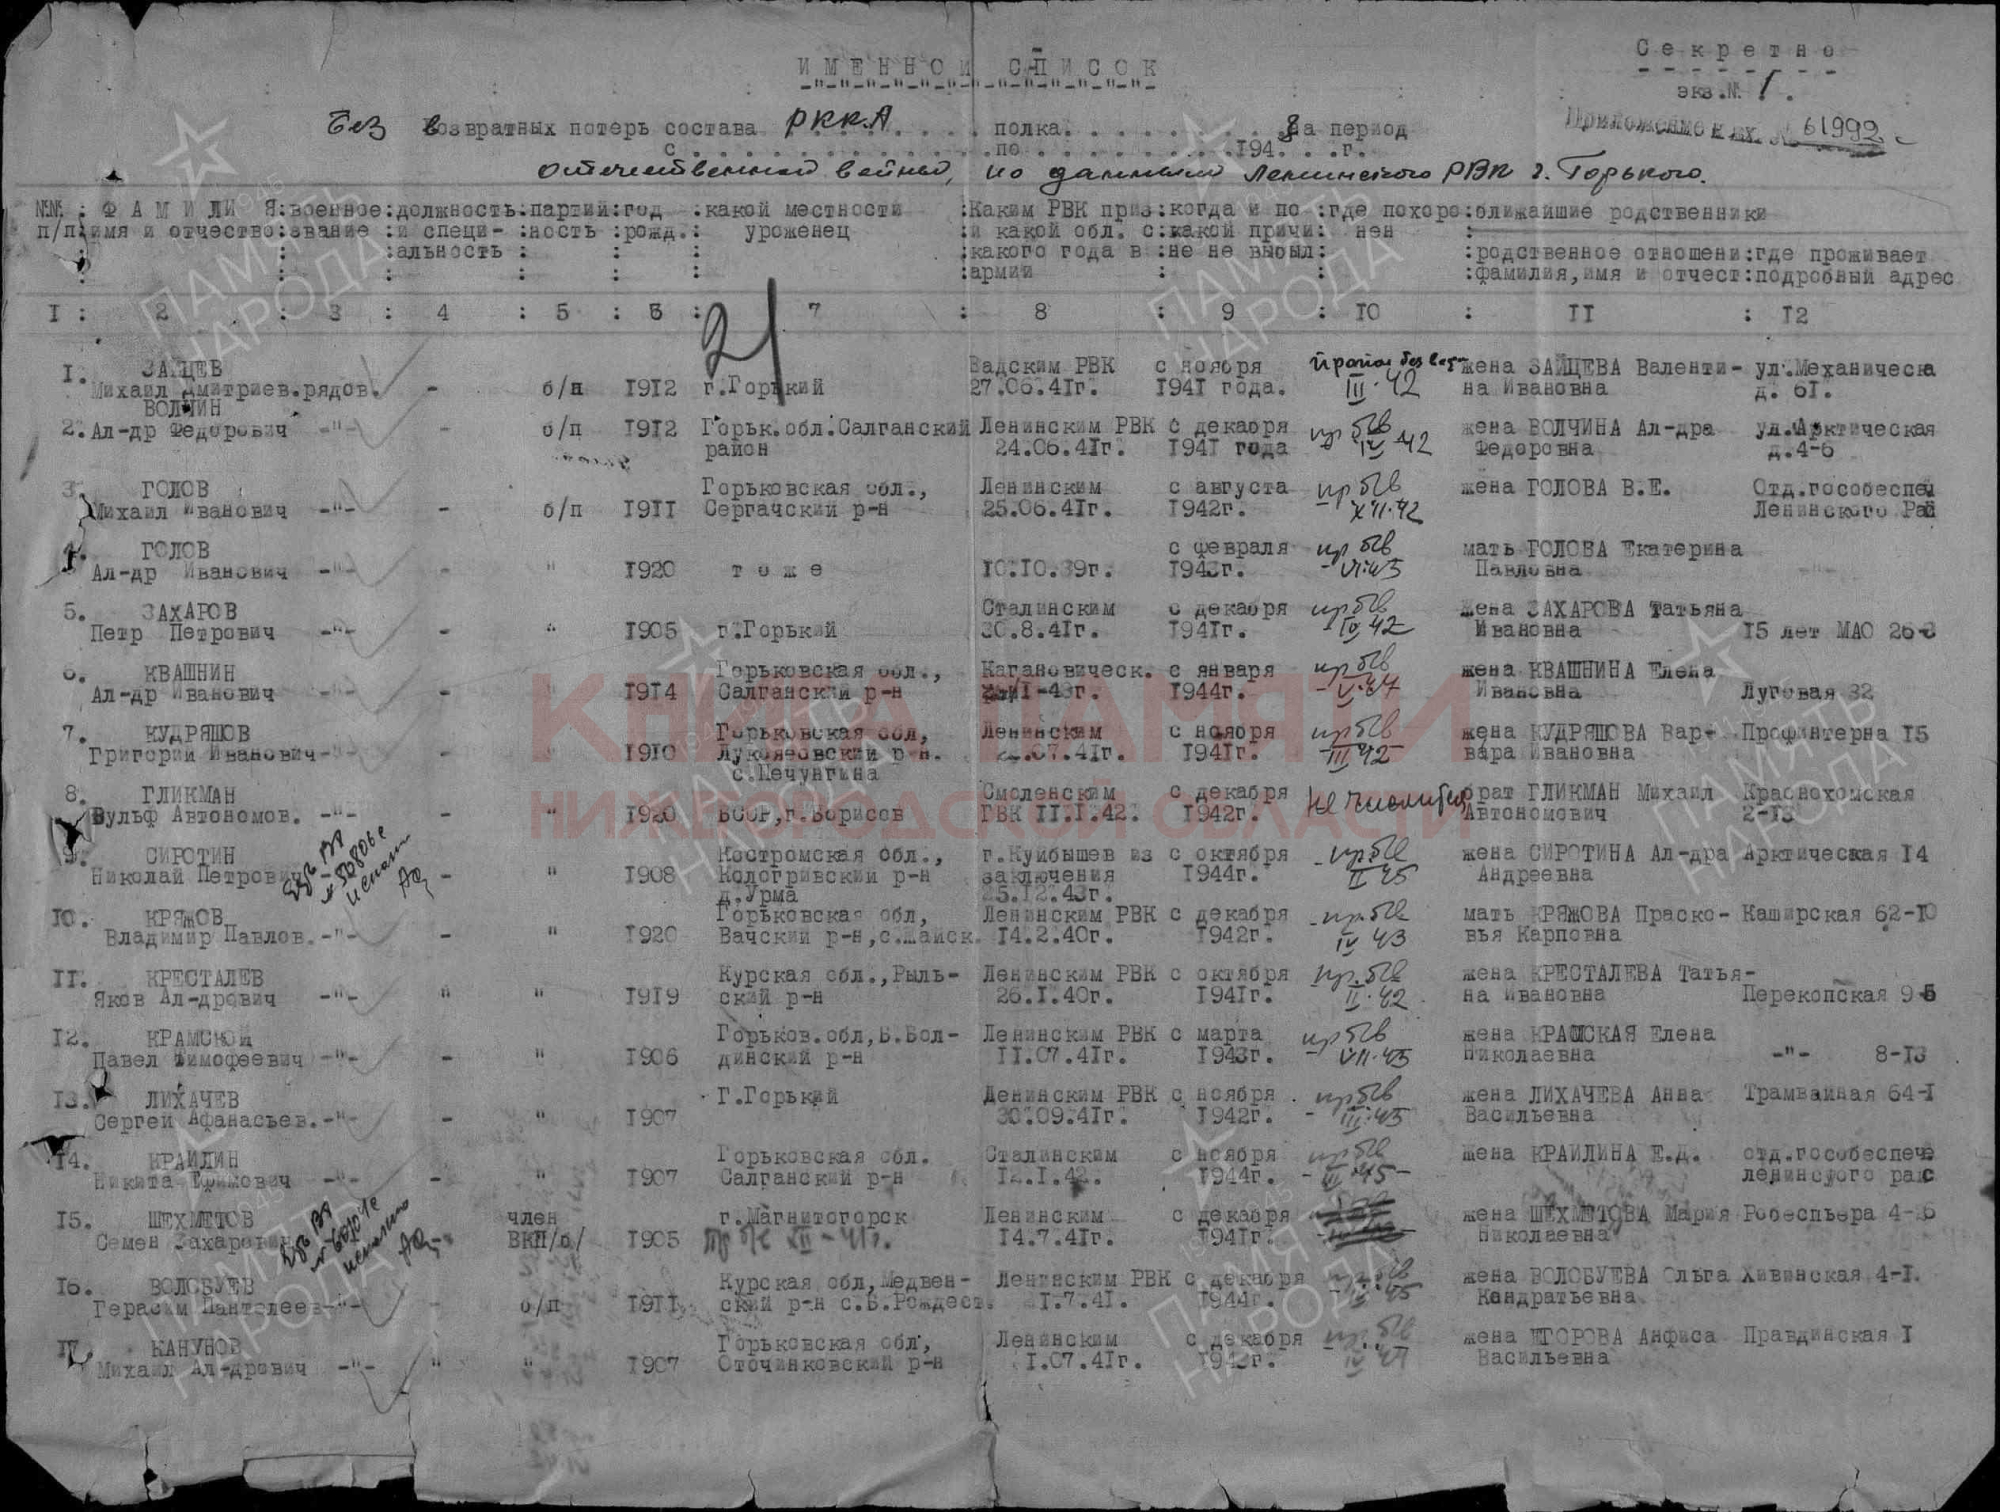 Секретно
ИМЕННОЙ СПИСОК
экз.№ 1.
Приложение к вх. № 61992 с
Без возвратных потерь состава РККА полка. на период
с по 194 г.
отечественной войны, по данным Ленинского РВК г. Горького.
№№ : ФАМИЛИЯ : военное : должность : партий : год : какой местности : Каким РВК приз : когда и по : где похоро : ближайшие родственники
п/п : имя и отчество : звание : и специ- : ность : рожд. : уроженец : и какой обл. с : какой причи : нен
альность : какого года в : не не выбыл : родственное отношени : где проживает
армии : фамилия, имя и отчест : подробный адрес
1 : 2 : 3 : 4 : 5 : 6 : 7 : 8 : 9 : 10 : 11 : 12
21
1. ЗАЙЦЕВ Вадским РВК с ноября жена ЗАЙЦЕВА Валенти- ул.Механическа
Михаил Дмитриев.рядов. - б/п 1912 г.Горький 27.06.41г. 1941 года. III.42 на Ивановна д. 61.
ВОЛЧИН
2. Ал-др Федорович -"- - б/п 1912 Горьк.обл.Салганский Ленинским РВК с декабря пр бв жена ВОЛЧИНА Ал-дра ул.Арктическая
район 24.06.41г. 1941 года IV 42 Федоровна д.4-6
3. ГОЛОВ Горьковская обл., Ленинским с августа пр бв жена ГОЛОВА В.Е. Отд.гособеспеч
Михаил Иванович -"- - б/п 1911 Сергачский р-н 25.06.41г. 1942г. XII.42 Ленинского Рай
4. ГОЛОВ с февраля пр бв мать ГОЛОВА Екатерина
Ал-др Иванович -"- - " 1920 тоже 10.10.39г. 1943г. Павловна
5. ЗАХАРОВ Сталинским с декабря пр бв жена ЗАХАРОВА Татьяна
Петр Петрович -"- - " 1905 г.Горький 30.8.41г. 1941г. IV 42 Ивановна 15 лет МАО 26-3
6. КВАШНИН Горьковская обл., Кагановическ. с января пр бв жена КВАШНИНА Елена
Ал-др Иванович -"- - 1914 Салганский р-н 1-43г. 1944г. Ивановна Луговая 32
7. КУДРЯШОВ Горьковская обл, Ленинским с ноября пр бв жена КУДРЯШОВА Вар- Профинтерна 15
Григорий Иванович - 1910 Лукояновский р-н. .07.41г. 1941г. III 42 вара Ивановна
8. ГЛИКМАН Смоленским с декабря Не числится брат ГЛИКМАН Михаил Краснохомская
Вульф Автономов. -"- - " 1920 БССР,г.Борисов ГВК 11.1.42. 1942г. Автономович 2-13
9. СИРОТИН Костромская обл., г.Куйбышев из с октября пр.бв жена СИРОТИНА Ал-дра Арктическая 14
Николай Петрович - " 1908 Кологривский р-н заключения 1944г. II 45 Андреевна
д.Урма 25.12.43г.
10. КРЯЖОВ Горьковская обл, Ленинским РВК с декабря пр.бв мать КРЯЖОВА Праско- Каширская 62-10
Владимир Павлов.-"- - " 1920 Вачский р-н,с.Жайск. 14.2.40г. 1942г. IV 43 вья Карповна
11. КРЕСТАЛЕВ Курская обл.,Рыль- Ленинским РВК с октября пр.бв жена КРЕСТАЛЕВА Татья-
Яков Ал-дрович -"- " " 1919 ский р-н 26.1.40г. 1941г. II.42 на Ивановна Перекопская 9-5
12. КРАМСКОЙ Горьков.обл,Б.Бол- Ленинским РВК с марта пр бв жена КРАМСКАЯ Елена
Павел Тимофеевич -"- - " 1906 динский р-н 11.07.41г. 1943г. VII.43 Николаевна -"- 8-13
13. ЛИХАЧЕВ Г.Горький Ленинским РВК с ноября пр бв жена ЛИХАЧЕВА Анна Трамвайная 64-1
Сергей Афанасьев.-"- - " 1907 30.09.41г. 1942г. III.43 Васильевна
14. КРАИЛИН Горьковская обл. Сталинским с ноября пр бв жена КРАИЛИНА Е.Д. отд.гособеспече
Никита Ефимович -"- - " 1907 Салганский р-н 12.1.42. 1944г. 45 ленинского райс
15. ШЕХМЕТОВ член г.Магнитогорск Ленинским с декабря жена ШЕХМЕТОВА Мария Робеспьера 4-26
Семен Захарович - ВКП/б/ 1905 пр б/в XII-41г. 14.7.41г. 1941г. Николаевна
16. ВОЛОБУЕВ Курская обл,Медвен- Ленинским РВК с декабря пр.бв жена ВОЛОБУЕВА Ольга Хивинская 4-1.
Герасим Пантелеев-"- - б/п 1911 ский р-н с.Б.Рождеств. 1.7.41. 1944г. 45 Кондратьевна
17. КАНУНОВ Горьковская обл, Ленинским с декабря пр. бв жена ЕГОРОВА Анфиса Правдинская 1
Михаил Ал-дрович -"- " " 1907 р-н 1.07.41г. Васильевна
КНИГА ПАМЯТИ
НИЖЕГОРОДСКОЙ ОБЛАСТИ
ПАМЯТЬ НАРОДА